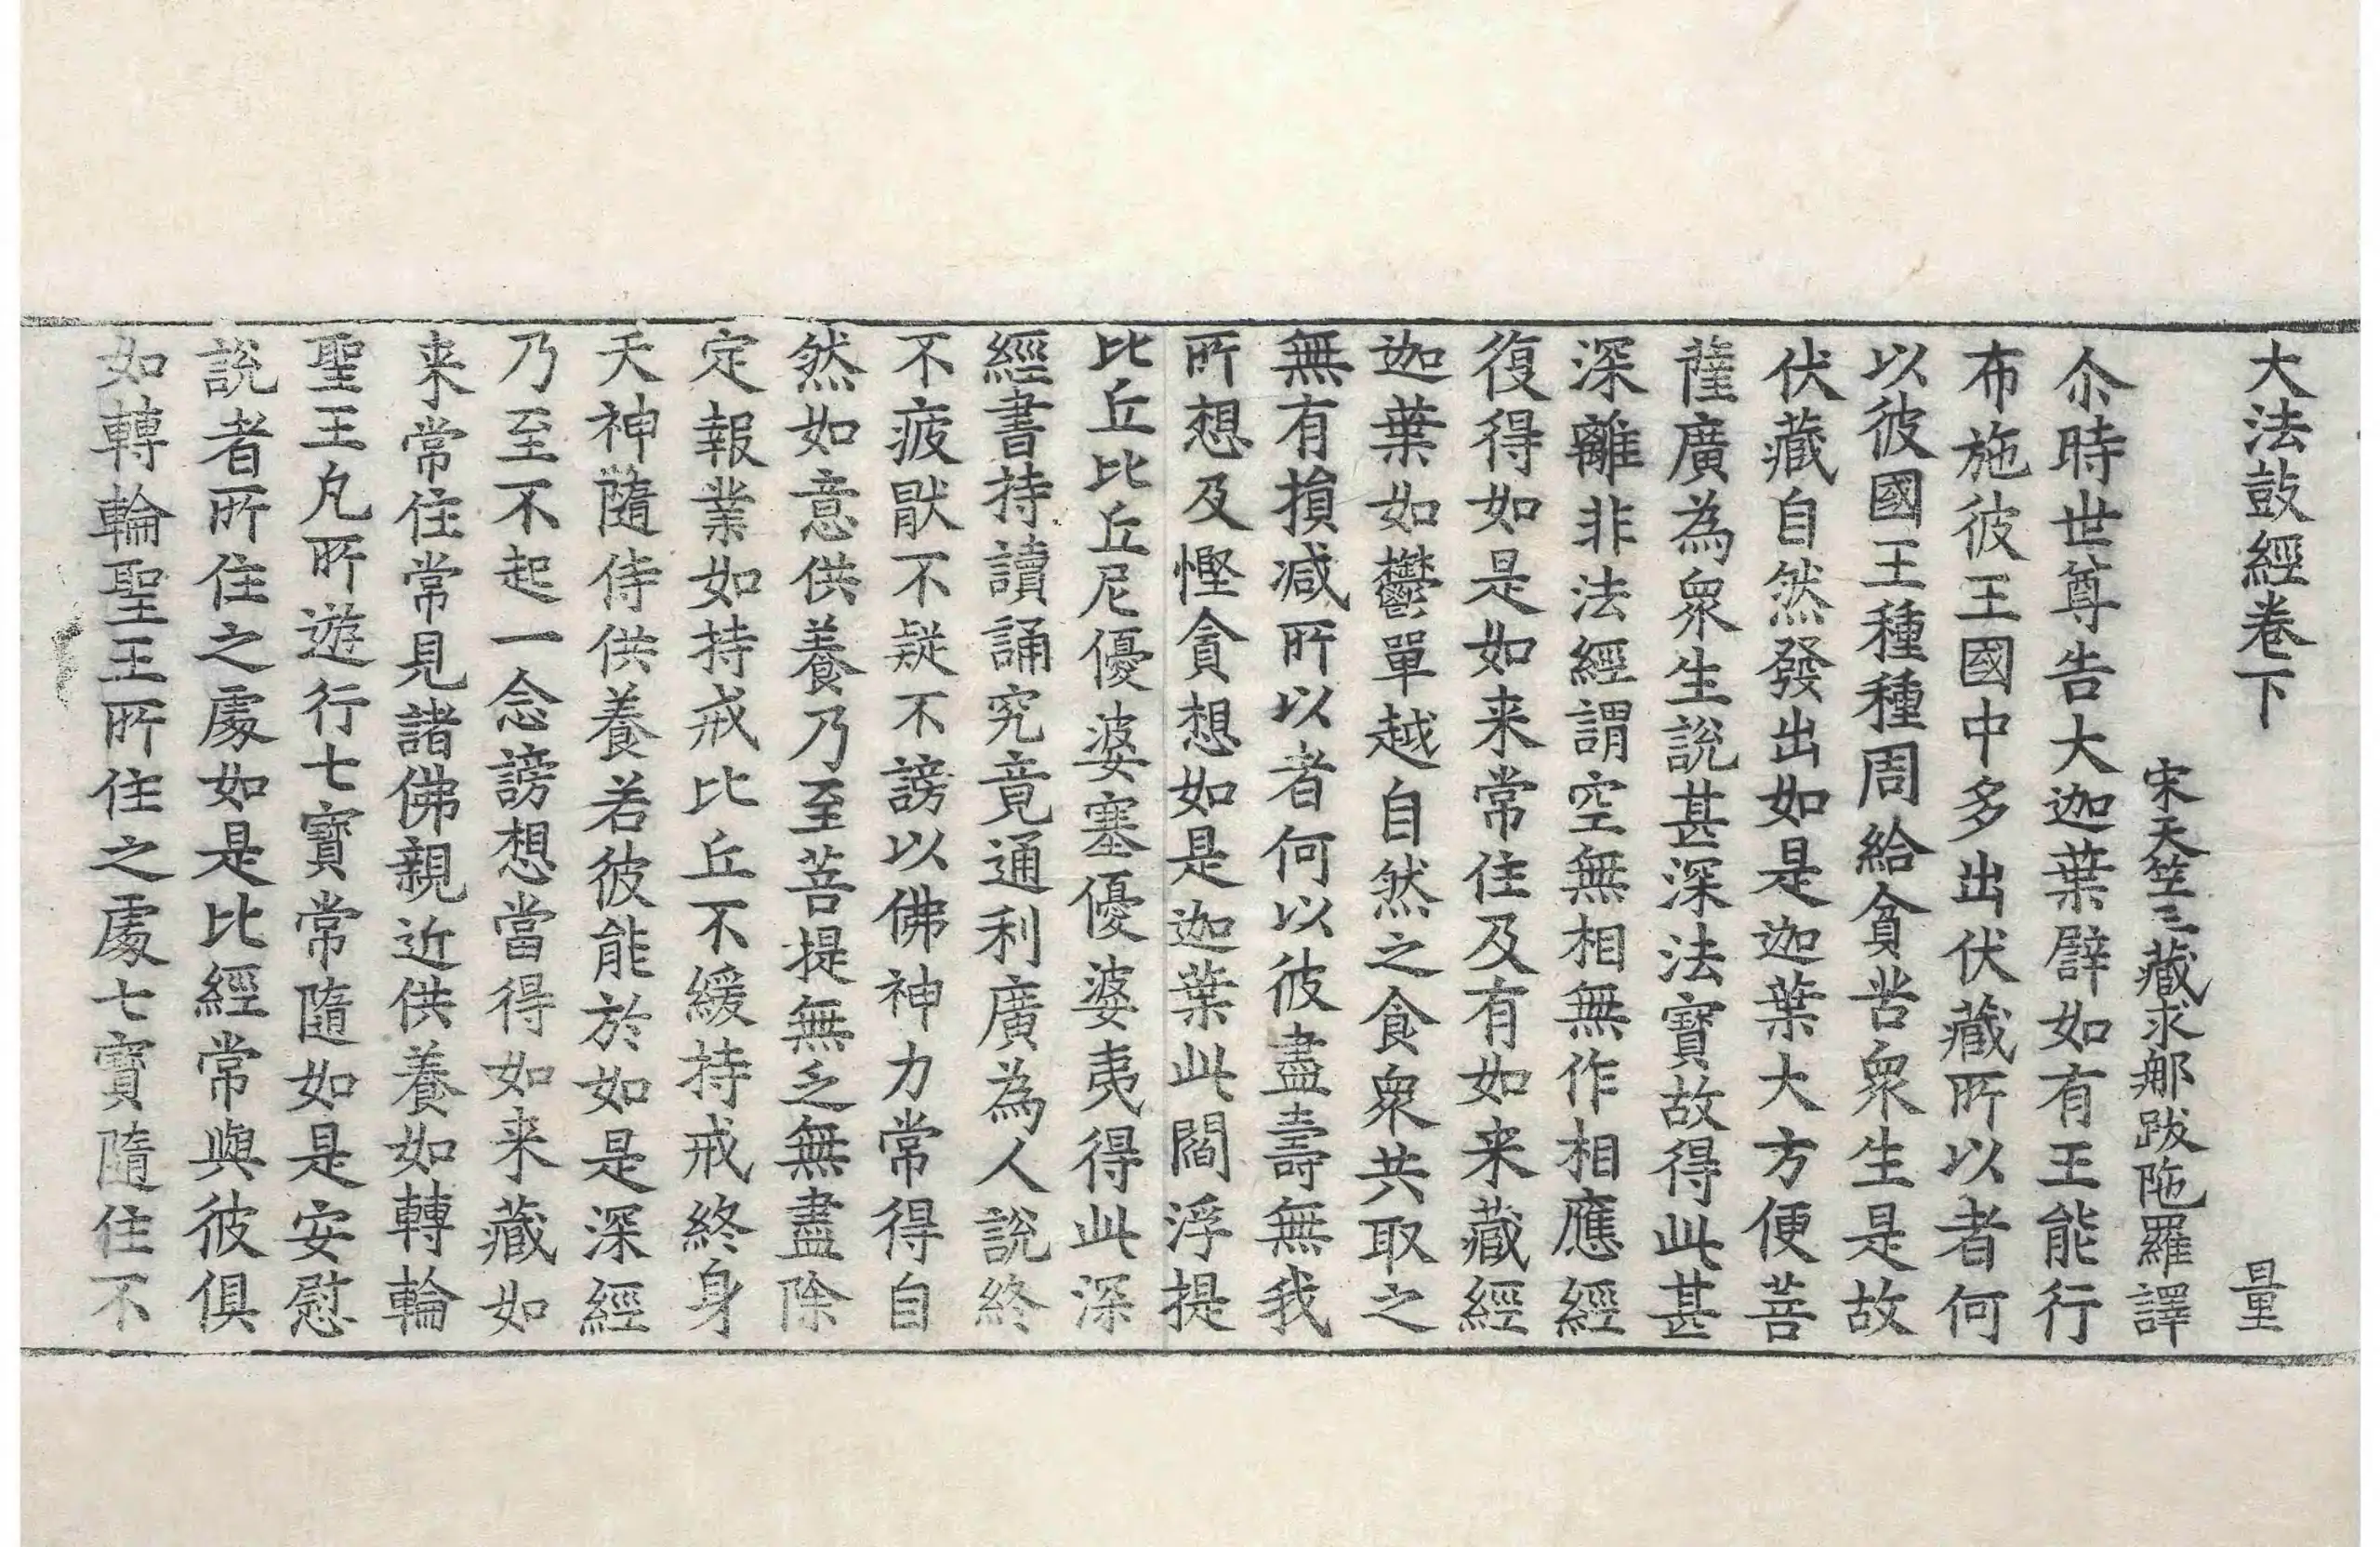 大法鼓經卷下　量
宋天竺三藏求那跋陁羅譯
尒時世尊告大迦葉辟如有王能行
布施彼王國中多出伏藏所以者何
以彼國王種種周給貧苦衆生是故
伏藏自然發出如是迦葉大方便菩
薩廣為衆生說甚深法寶故得此甚
深離非法經謂空無相無作相應經
復得如是如来常住及有如来藏經
迦葉如鬱單越自然之食衆共取之
無有損减所以者何以彼盡壽無我
所想及慳貪想如是迦葉此閻浮提
比丘比丘尼優婆塞優婆夷得此深
經書持讀誦究竟通利廣為人說終
不疲猒不疑不謗以佛神力常得自
然如意供養乃至菩提無乏無盡除
定報業如持戒比丘不緩持戒終身
天神隨侍供養若彼能於如是深經
乃至不起一念謗想當得如来藏如
来常住常見諸佛親近供養如轉輪
聖王凡所遊行七寶常隨如是安慰
說者所住之處如是比經常與彼俱
如轉輪聖王所住之處七寶隨住不